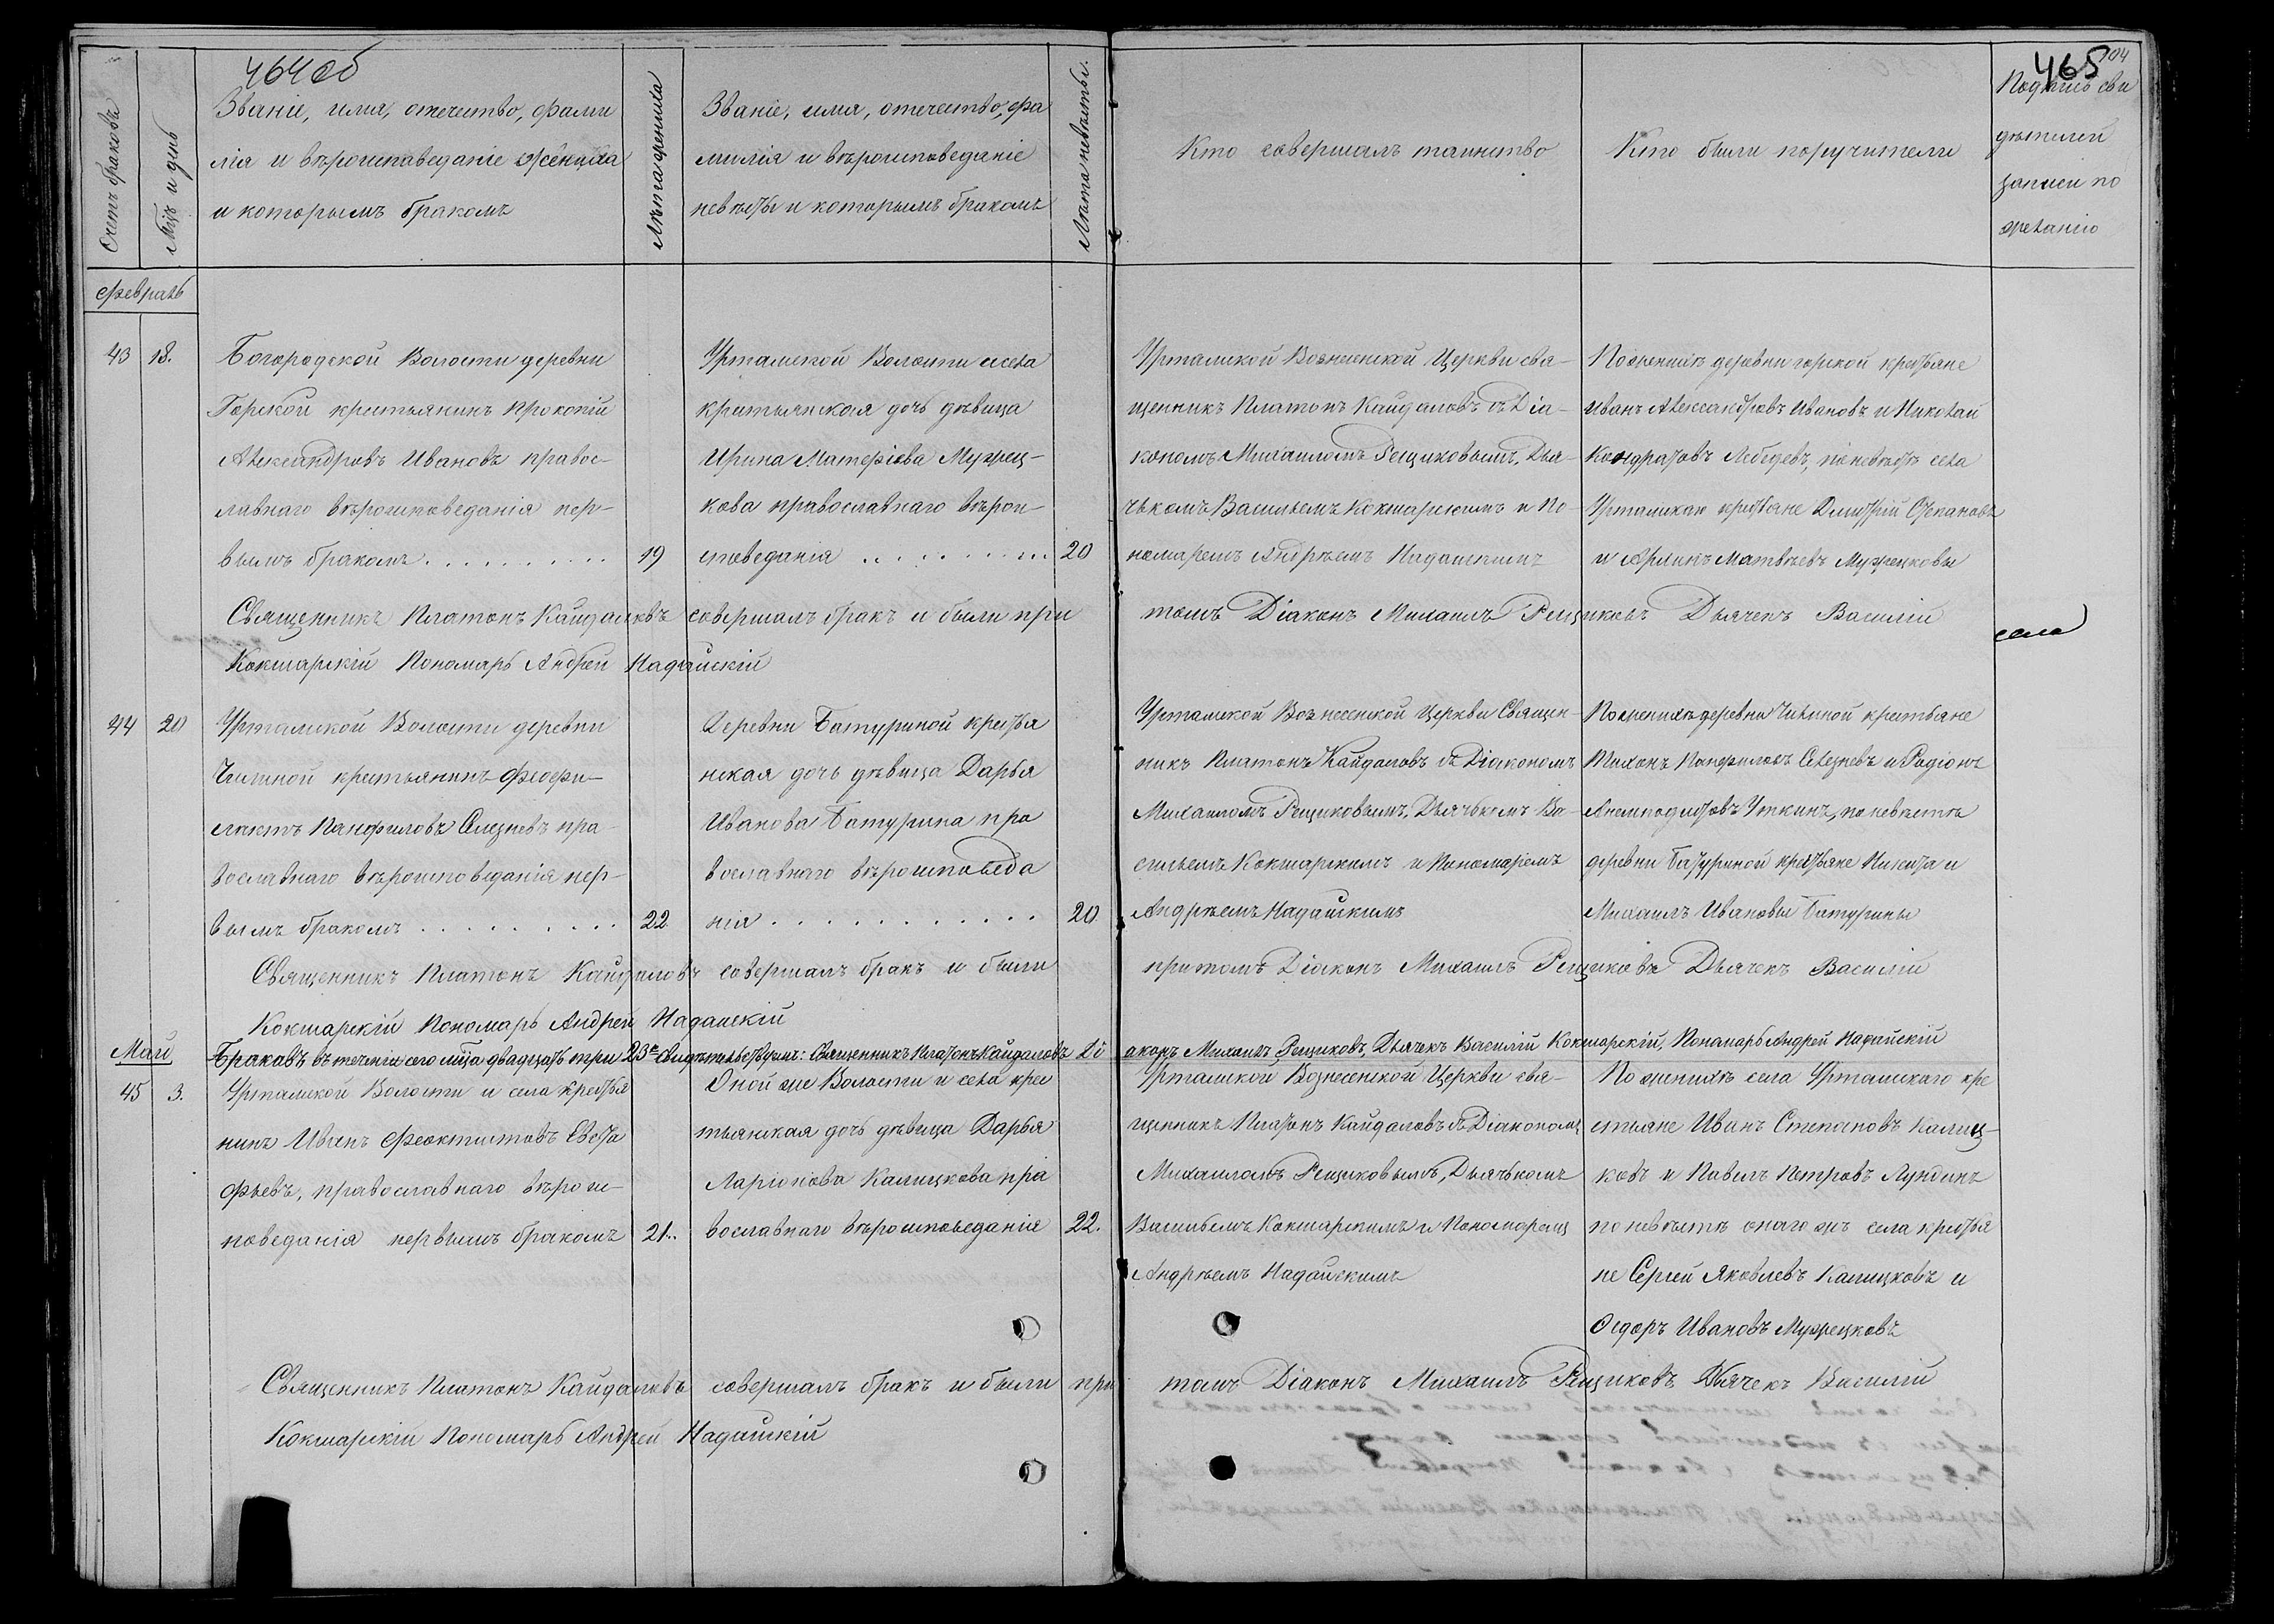 464 об
465
104
Счетъ браковъ
Мцъ и день
Званіе, имя, отечество, фами
лія и вѣроисповеданіе жениха
и которымъ бракомъ
Лѣта жениха
Званіе, имя, отечество, фа
милія и вѣроисповеданіе
невѣсты и которымъ бракомъ
Лѣта невѣсты.
Кто совершалъ таинство
Кто были поручители
Подпись сви
дѣтелей
записи по
желанію
Февраль
43
18.
Богородской Волости деревни
Горской крестьянинъ Прокопій
Александровъ Ивановъ правос-
лавнаго вѣроисповеданія пер-
вымъ бракомъ . . . . . . . . . .
19
Уртамской Волости и села
крестьянская дочь дѣвица
Ирина Матфіева Мужец-
кова православнаго вѣрои-
споведанія . . . . . . . . . .
20
Уртамской Вознесенской Церкви свя-
щенникъ Платонъ Кайдаловъ съ Діа-
кономъ Михаиломъ Рещиковымъ, Дья-
чькомъ Васильемъ Кокшарскимъ и По-
номаремъ Андрѣемъ Надаискимъ
По женихѣ деревни горской крестьяне
Иванъ Александровъ Ивановъ и Николай
Кондратовъ Лебедевъ, по невѣстѣ села
Уртамскаго крестьяне Дмитрій Степановъ
и Матвѣевъ Мужецковы
Священникъ Платонъ Кайдаловъ совершалъ бракъ и были при
томъ Діаконъ Михаилъ Рещиковъ Дьячекъ Василій
Кокшарскій Пономарь Андрей Надаискій
села
44
20
Уртамской Волости деревни
Чилиной крестьянинъ Феофи-
лактъ Панфиловъ Селезневъ пра-
вославнаго вѣроисповеданія пер-
вымъ бракомъ . . . . . . . . . .
22
Деревни Батуриной кресть
нская дочь дѣвица Дарья
Иванова Батурина пра
вославнаго вѣроисповеда
нія . . . . . . . . . . . .
20
Уртамской Вознесенской Церкви Священ-
никъ Платонъ Кайдаловъ съ Діакономъ
Михаиломъ Рещиковымъ, Дьячькомъ Ва-
сильемъ Кокшарскимъ и Пономаремъ
Андрѣемъ Надаискимъ
По женихѣ деревни Чилиной крестьяне
Тихонъ Панфиловъ Селезневъ и Родіонъ
Анемподистовъ Уткинъ, по невѣстѣ
деревни Батуриной крестьяне Никита и
Михаилъ Ивановы Батурины
Священникъ Платонъ Кайдаловъ совершалъ бракъ и были
притомъ Діаконъ Михаилъ Рещиковъ Дьячекъ Василій
Кокшарскій Пономарь Андрей Надаискій
Браковъ въ теченіи сего мца двадцать три 23 е свидѣтельствуемъ: Священникъ Платонъ Кайдаловъ Ді
аконъ Михаилъ Рещиковъ, Дьячекъ Василій Кокшарскій, Понамарь Андрей Надаискій
Май
45
3.
Уртамской Волости и села крестья
нинъ Иванъ Феоктистовъ Евста
фьевъ, православнаго вѣроис-
поведанія первымъ бракомъ
21..
Оной же Волости и села крес
тьянская дочь дѣвица Дарья
Ларіонова Калицкова пра
вославнаго вѣроисповеданія
22.
Уртамской Вознесенской Церкви свя-
щенникъ Платонъ Кайдаловъ съ Діакономъ
Михаиломъ Рещиковымъ, Дьячькомъ
Васильемъ Кокшарскимъ и Пономаремъ
Андрѣемъ Надаискимъ
По женихѣ села Уртамскаго кре
стьяне Иванъ Степановъ Калиц-
ковъ и Павелъ Петровъ Лундинъ
по невѣстѣ онаго жъ села крестья
не Сергей Яковлевъ Калицковъ и
Ѳедоръ Ивановъ Мужецковъ
Священникъ Платонъ Кайдаловъ совершалъ бракъ и были при
томъ Діаконъ Михаилъ Рещиковъ Дьячекъ Василій
Кокшарскій Пономарь Андрей Надаискій